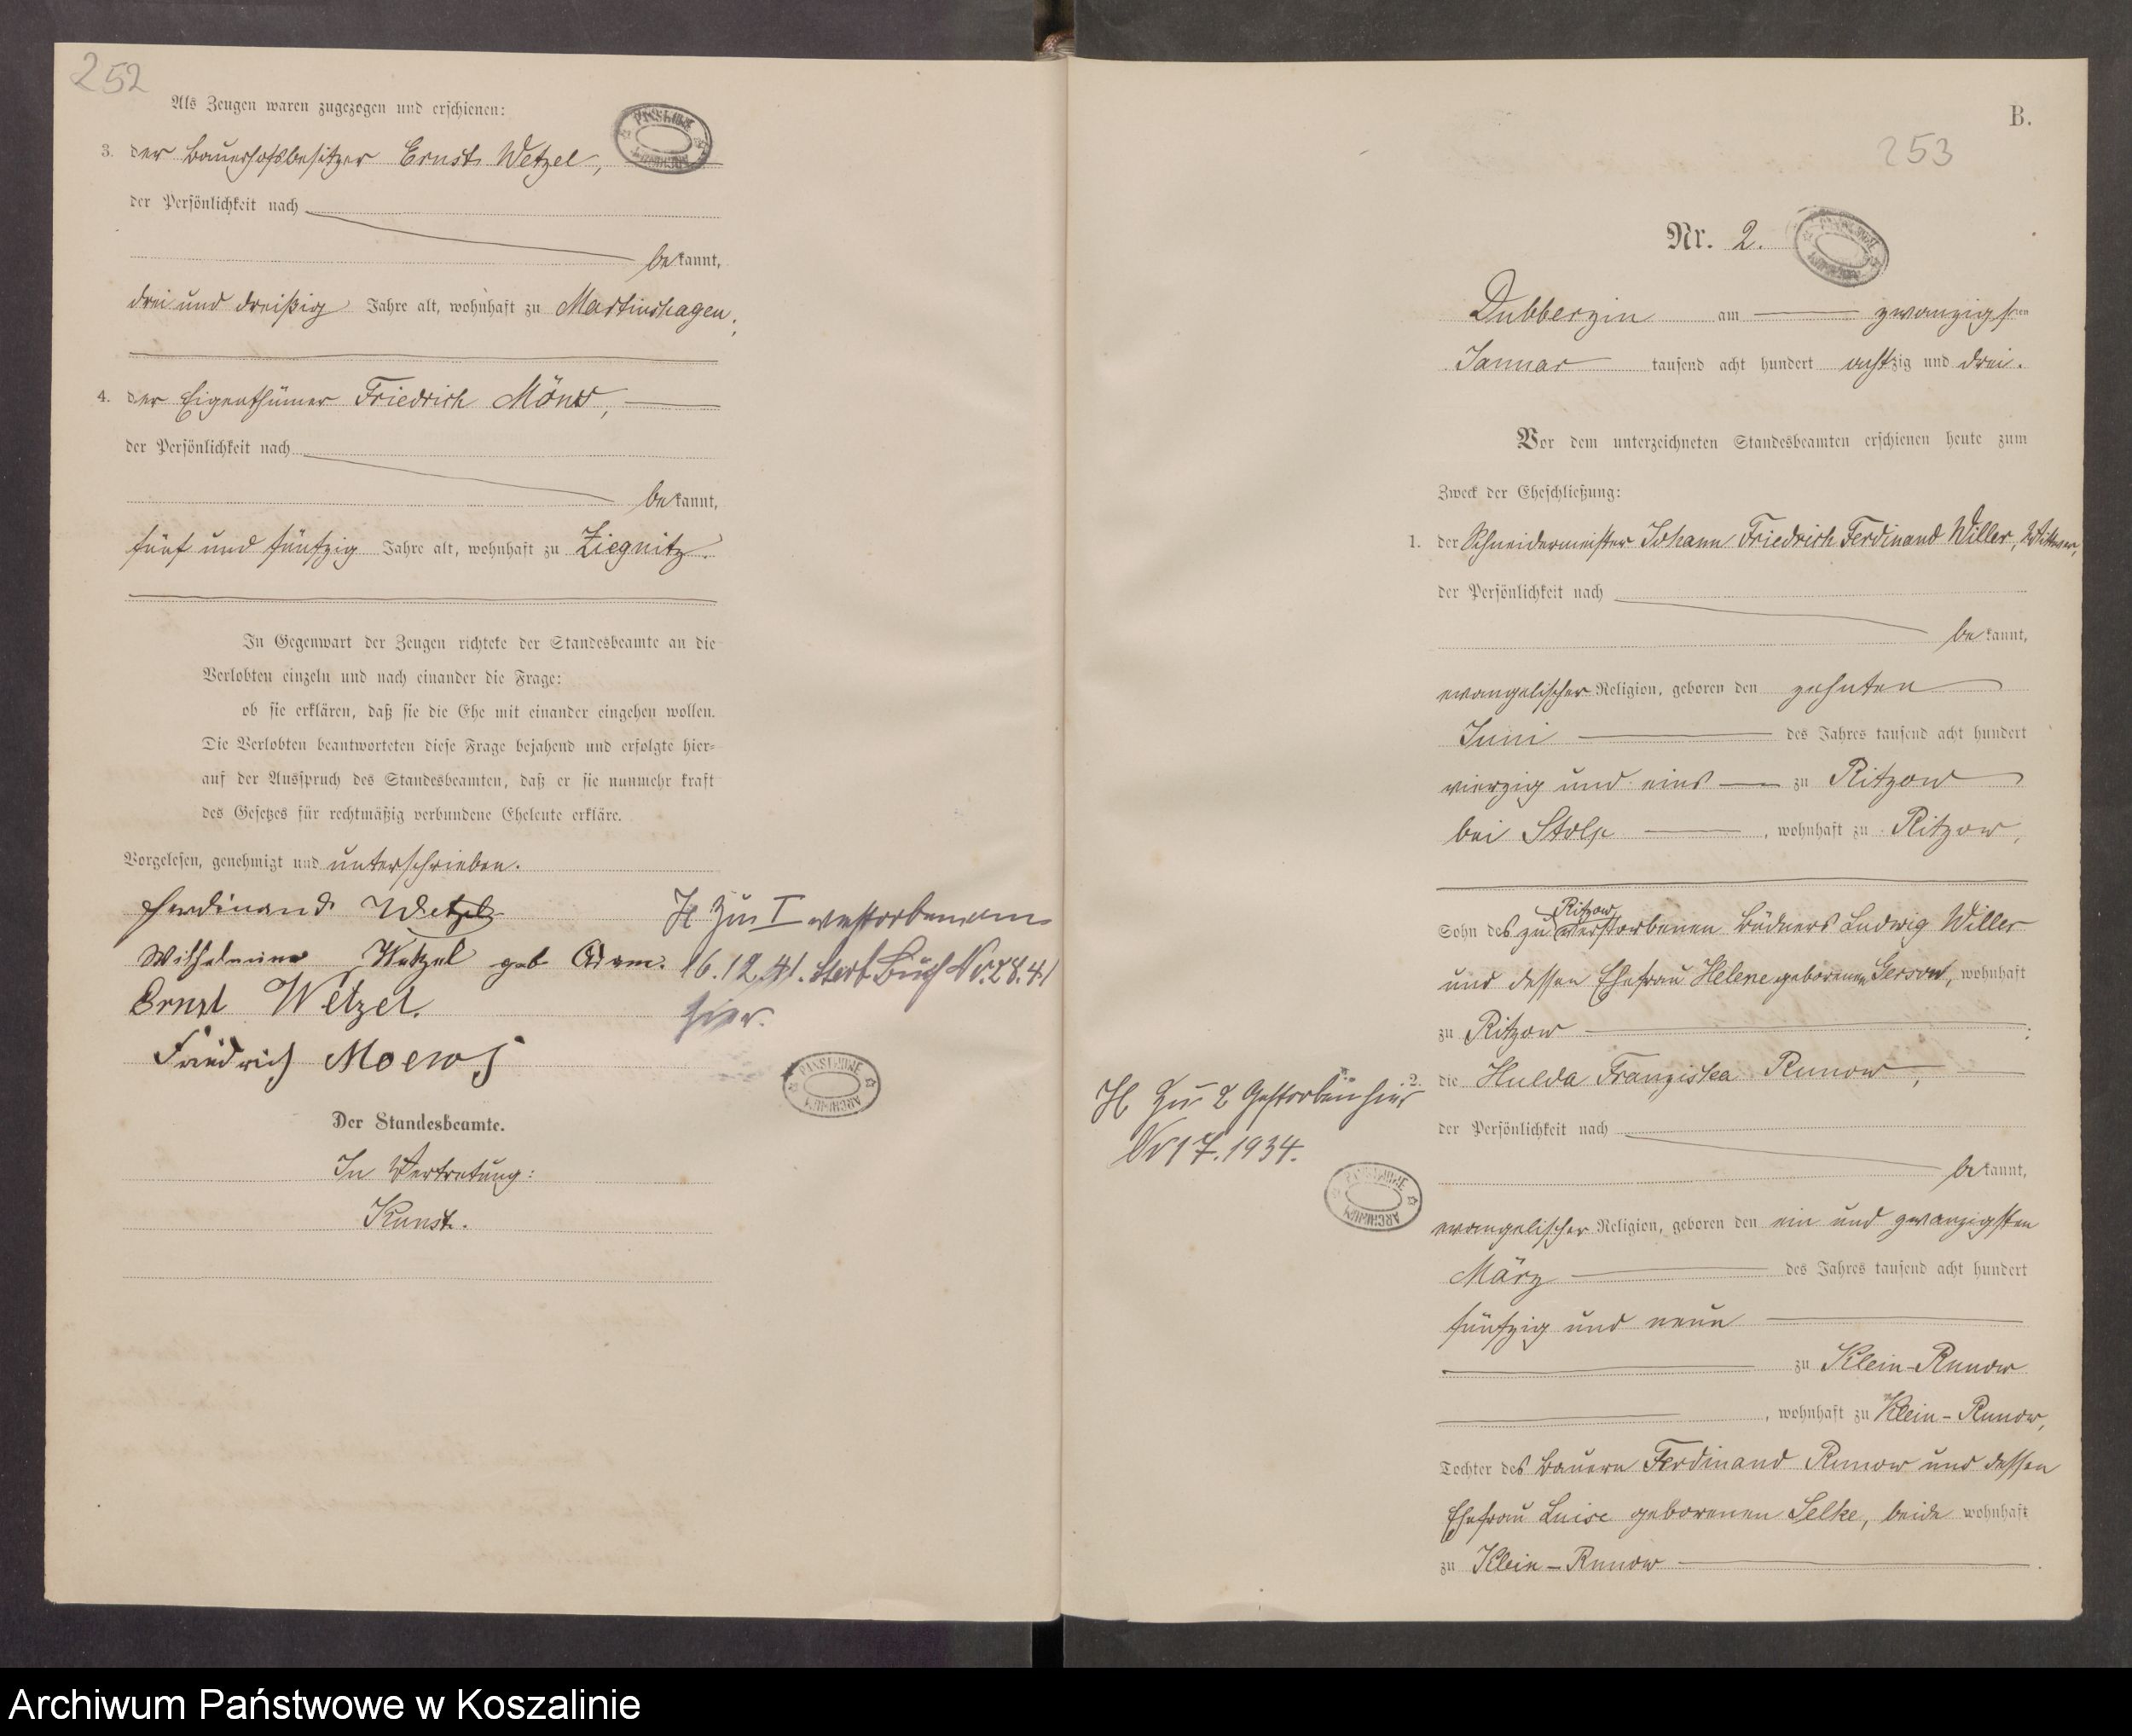 252
Als Zeugen waren zugezogen und erschienen:
3. der Bauerhofsbesitzer Ernst Wetzel,
der Persönlichkeit nach
bekannt,
drei und dreißig Jahre alt, wohnhaft zu Martinshagen;
4. der Eigenthümer Friedrich Mönss,
der Persönlichkeit nach
bekannt,
fünf und fünfzig Jahre alt, wohnhaft zu Ziegnitz.
In Gegenwart der Zeugen richtete der Standesbeamte an die
Verlobten einzeln und nach einander die Frage:
ob sie erklären, daß sie die Ehe mit einander eingehen wollen.
Die Verlobten beantworteten diese Frage bejahend und erfolgte hier=
auf der Ausspruch des Standesbeamten, daß er sie nunmehr kraft
des Gesetzes für rechtmäßig verbundene Eheleute erkläre.
Vorgelesen, genehmigt und unterschrieben.
Ferdinand Wetzel
Wilhelmine Wetzel geb Adam.
Ernst Wetzel.
Friedrich Moews
H zu I verstorben am
16.12.41. Sterb Buch Nr. 28.41
hier.
PAŃSTWOWE ARCHIWUM
Der Standesbeamte.
In Vertretung:
Kunst.
B.
253
Nr. 2.
Dubberzin am zwanzigsten
Januar tausend acht hundert achtzig und drei.
Vor dem unterzeichneten Standesbeamten erschienen heute zum
Zweck der Eheschließung:
1. der Schneidermeister Johann Friedrich Ferdinand Willer, Wittwer,
der Persönlichkeit nach
bekannt,
evangelischer Religion, geboren den zehnten
Juni des Jahres tausend acht hundert
vierzig und eins zu Ritzow
bei Stolp, wohnhaft zu Ritzow,
Sohn des zu Ritzow verstorbenen Büdners Ludwig Willer
und dessen Ehefrau Helene geborenen Gerson, wohnhaft
zu Ritzow;
2. die Hulda Franziska Runow,
der Persönlichkeit nach
bekannt,
H zu 2 Gestorben hier
Nr 17. 1934.
PAŃSTWOWE ARCHIWUM
evangelischer Religion, geboren den ein und zwanzigsten
März des Jahres tausend acht hundert
fünfzig und neun
zu Klein-Runow
, wohnhaft zu Klein-Runow,
Tochter des Bauern Ferdinand Runow und dessen
Ehefrau Luise geborenen Selke, beide wohnhaft
zu Klein-Runow.
Archiwum Państwowe w Koszalinie